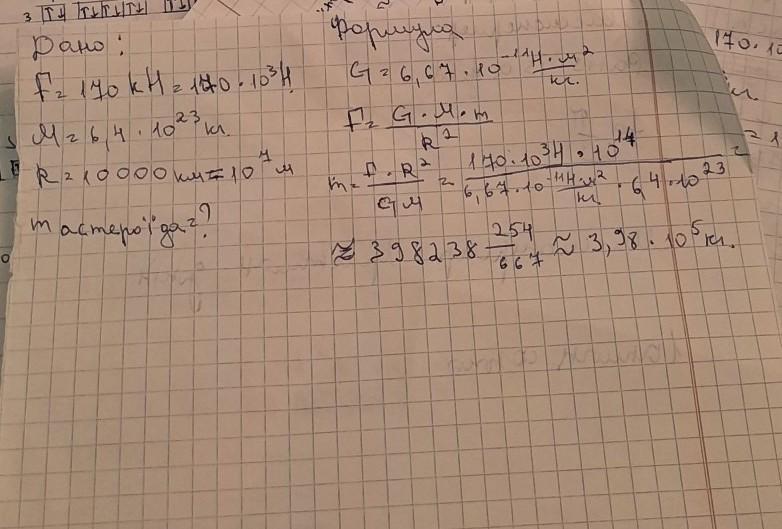 3
Дано:
F = 170 kН = 170 · 10³Н.
M = 6,4 · 10²³ кг.
R = 10000 км = 10⁷ м
m астероїда = ?
Формула
G = 6,67 · 10⁻¹¹ Н · м² / кг.
F = G · M · m / R²
m = F · R² / GM = 170 · 10³Н · 10¹⁴ / 6,67 · 10⁻¹¹ Н · м² / кг. · 6,4 · 10²³ =
≈ 398238 254/667 ≈ 3,98 · 10⁵ кг.
170 · 10
кг.
= 1